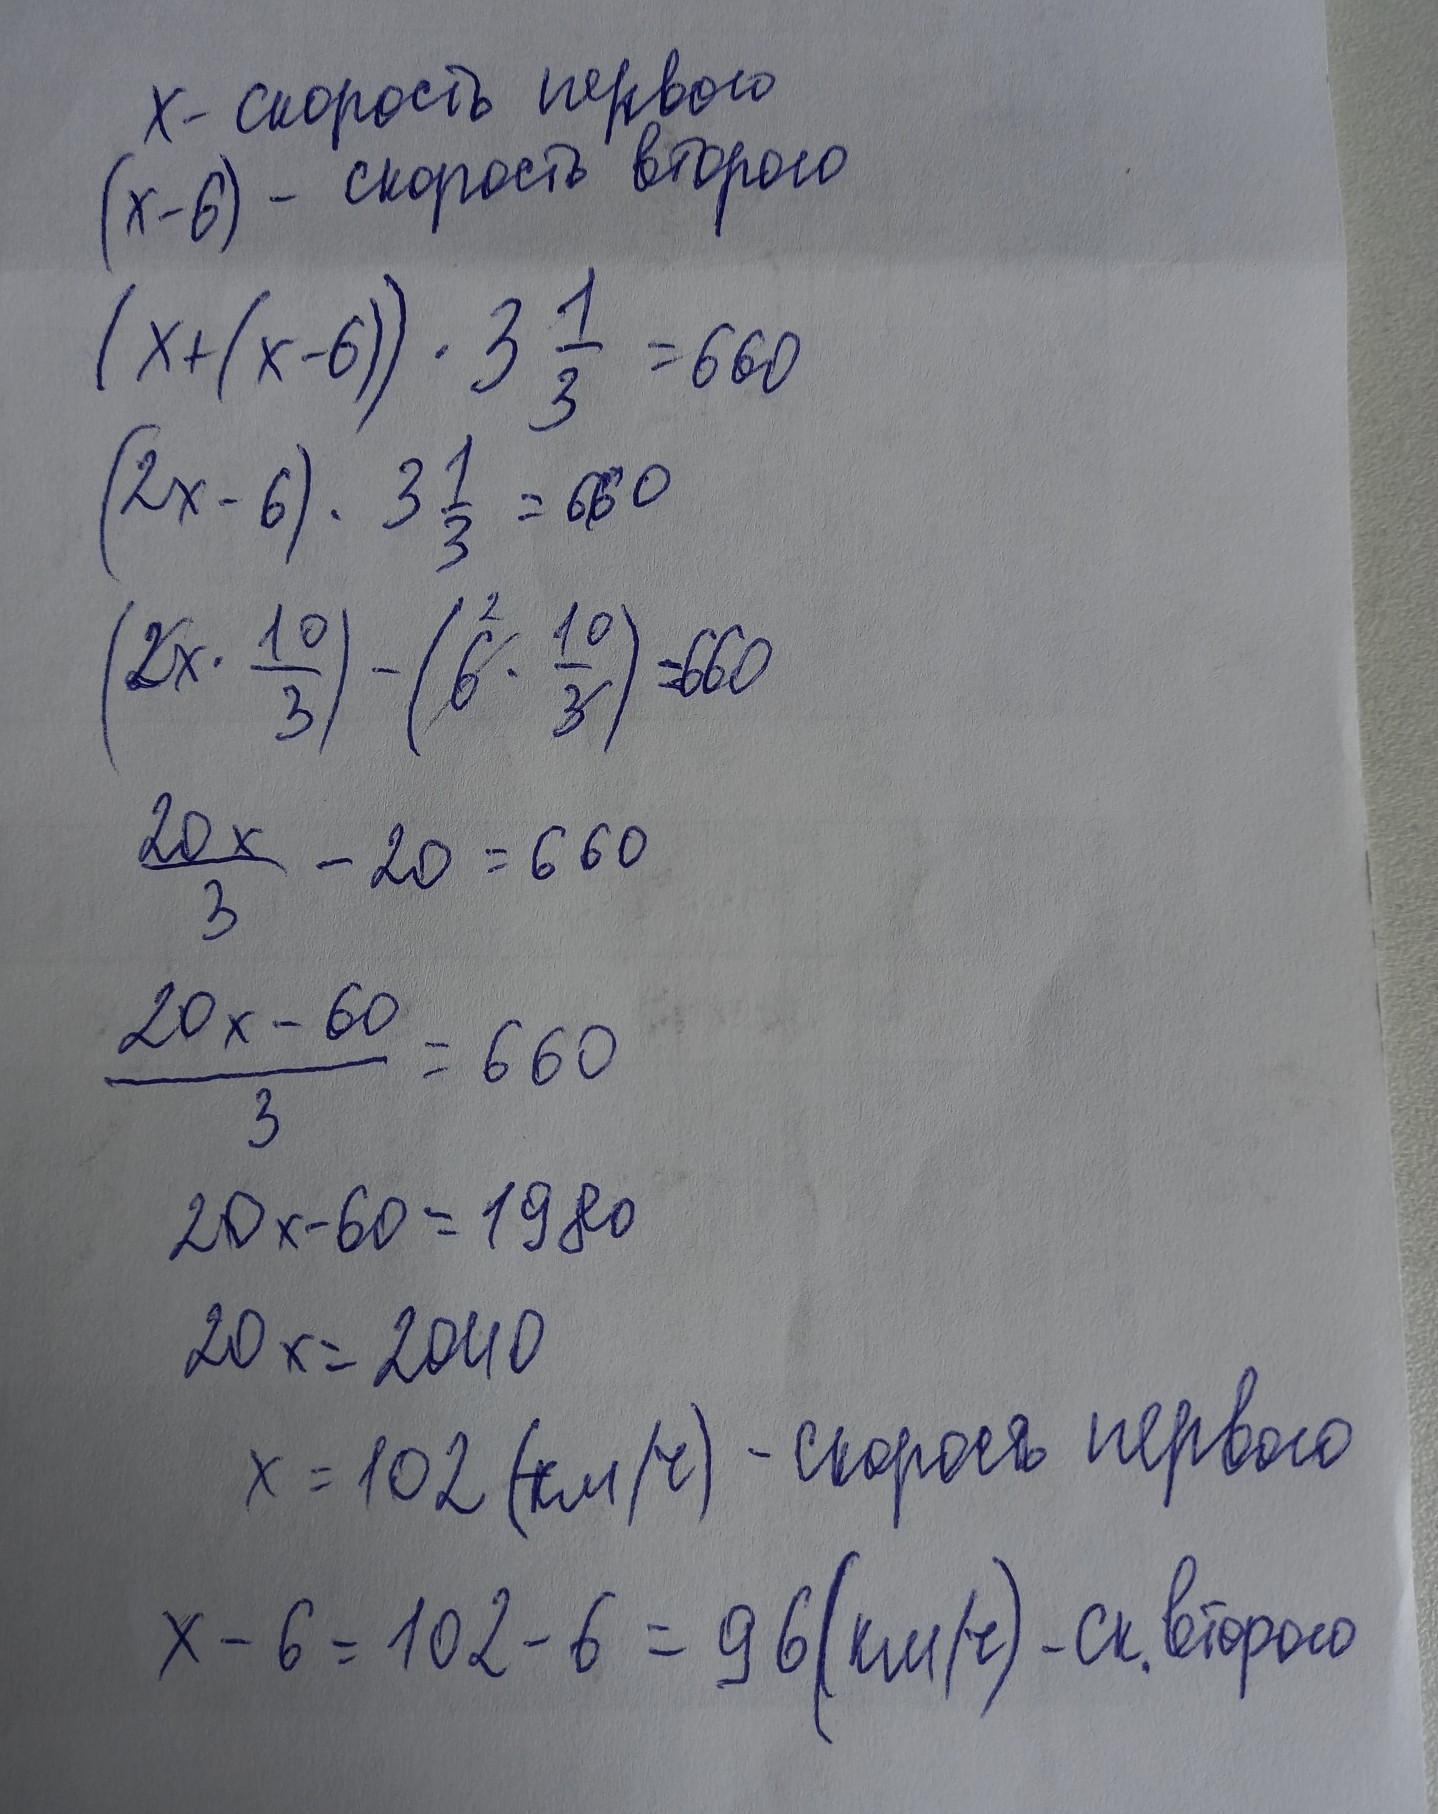 x - скорость первого
(x-6) - скорость второго
(x+(x-6)) · 3 1/3 = 660
(2x-6) · 3 1/3 = 660
(2x · 10/3) - (6 2 · 10/3) = 660
20x/3 - 20 = 660
20x-60/3 = 660
20x-60 = 1980
20x = 2040
x = 102 (км/ч) - скорость первого
x - 6 = 102 - 6 = 96 (км/ч) - ск. второго